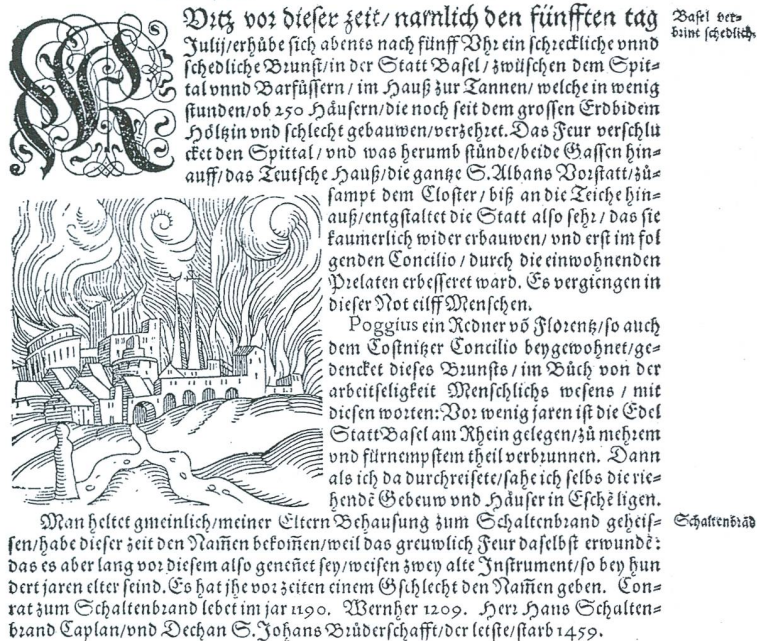 KVrtz vor dieser zeit/ namlich den fünfften tag
Julij/erhübe sich abents nach fünff Vhr ein schreckliche vnnd
schedliche Brunst/in der Statt Basel/zwüschen dem Spit-
tal vnnd Barfüssern/im Hauß zur Tannen/welche in wenig
stunden/ob 250 Häusern/die noch seit dem grossen Erdbidem
Höltzin vnd schlecht gebauwen/verzehret. Das Feur verschlu
cket den Spittal/vnd was herumb stünde/beide Gassen hin-
auff/das Teutsche Hauß/die gantze S. Albans Vorstatt/zů-
sampt dem Closter/biß an die Teiche hin-
auß/entgstaltet die Statt also sehr/das sie
kaumerlich wider erbauwen/vnd erst im fol
genden Concilio/durch die einwohnenden
Prelaten erbesseret ward. Es vergiengen in
dieser Not eilff Menschen.
Poggius ein Redner võ Florentz/so auch
dem Costnitzer Concilio beygewohnet/ge-
dencket dieses Brunsts/im Bůch von der
arbeitseligkeit Menschlichs wesens/mit
diesen worten: Vor wenig jaren ist die Edel
Statt Basel am Rhein gelegen/zů mehrem
vnd fürnempstem theil verbrunnen. Dann
als ich da durchreisete/sahe ich selbs die rie-
hendē Gebeuw vnd Häuser in Eschē ligen.
Man heltet gmeinlich/meiner Eltern Behausung zum Schaltenbrand geheis-
sen/habe dieser zeit den Nam̃en bekom̃en/weil das greuwlich Feur daselbst erwundē:
das es aber lang vor diesem also genen̄et sey/weisen zwey alte Instrument/so bey hun
dert jaren elter seind. Es hat jhe vor zeiten einem Gschlecht den Nam̃en geben. Con-
rat zum Schaltenbrand lebet im jar 1190. Wernher 1209. Herr Hans Schalten-
brand Caplan/vnd Dechan S. Johans Brüderschafft/der letste/starb 1459.
Basel ver-
brint schedlich
Schaltenbrād